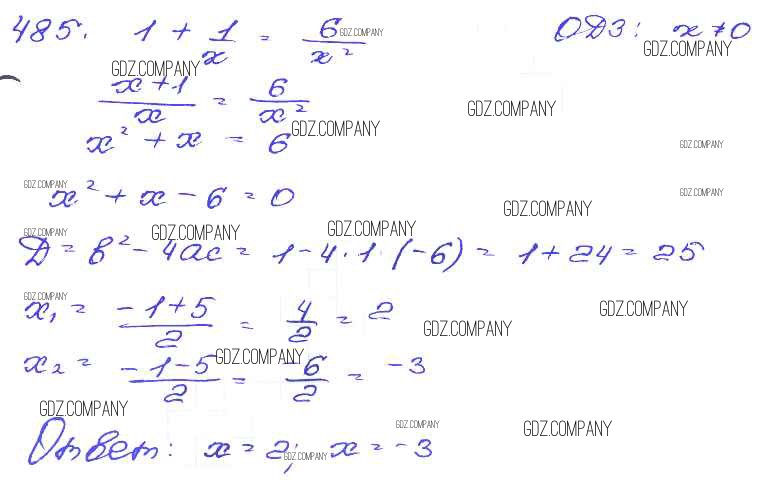 485. 1 + 1/x = 6/x² ОДЗ: x ≠ 0
GDZ.COMPANY
GDZ.COMPANY GDZ.COMPANY
(x+1)/x = 6/x²
GDZ.COMPANY
x² + x = 6 GDZ.COMPANY
GDZ.COMPANY
GDZ.COMPANY GDZ.COMPANY
x² + x - 6 = 0 GDZ.COMPANY
GDZ.COMPANY GDZ.COMPANY GDZ.COMPANY
D = b² - 4ac = 1 - 4·1·(-6) = 1 + 24 = 25
GDZ.COMPANY GDZ.COMPANY
x₁ = (-1+5)/2 = 4/2 = 2
GDZ.COMPANY
GDZ.COMPANY
x₂ = (-1-5)/2 = -6/2 = -3
GDZ.COMPANY
GDZ.COMPANY GDZ.COMPANY
Ответ: x = 2; x = -3
GDZ.COMPANY